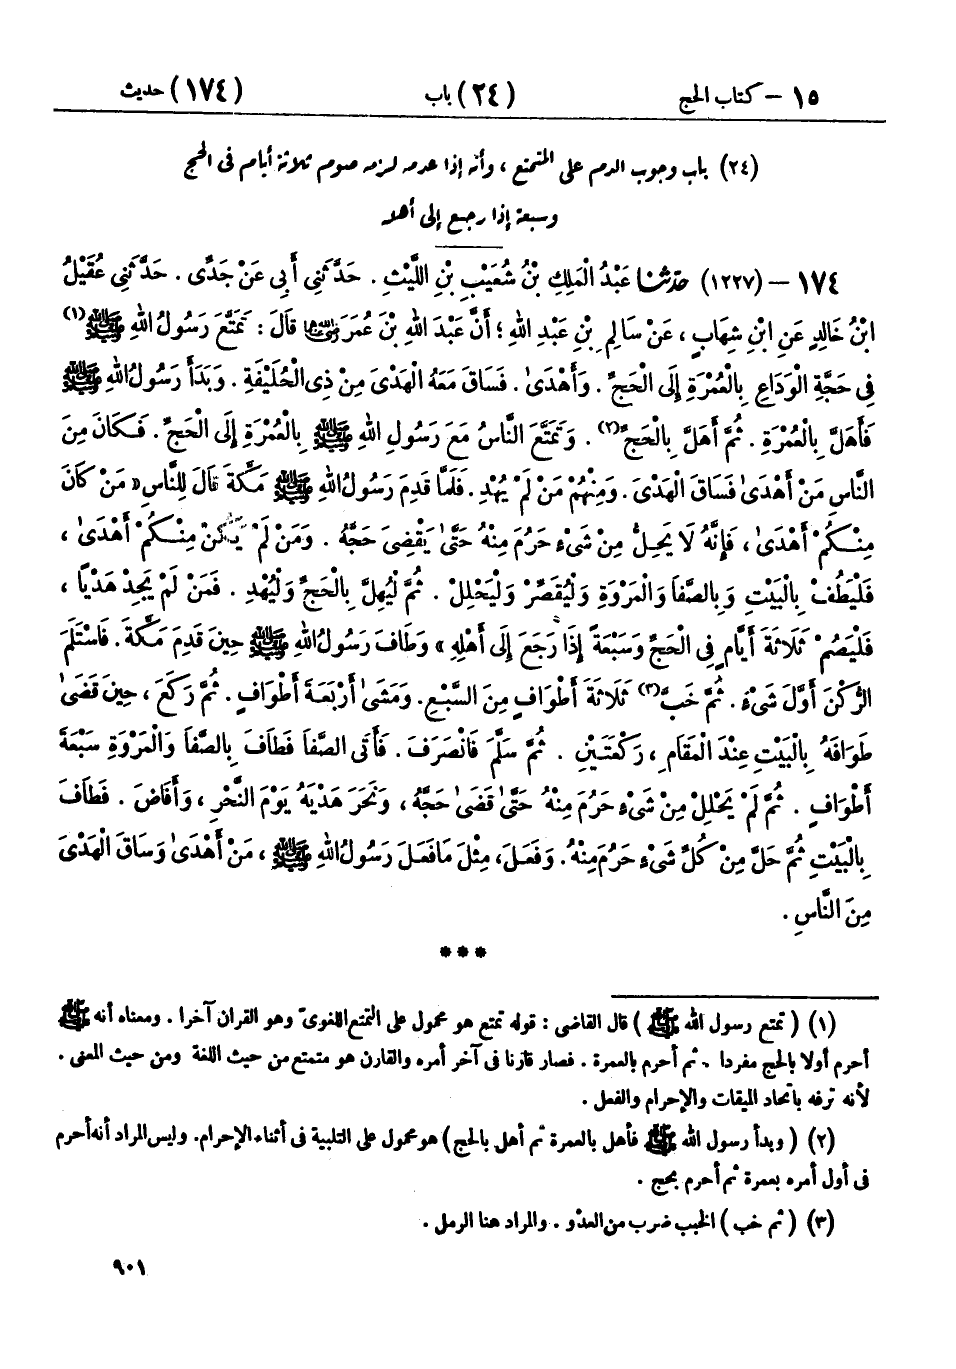 ١٥ – كتاب الحج (٢٤) باب (١٧٤) حديث
(٢٤) باب وجوب الدم على المتمتع ، وأنه إذا عدمه لزمه صوم ثلاثة أيام فى الحج
وسبعة إذا رجع إلى أهله
١٧٤ – (١٢٢٧) حَدَّثَنَا عَبْدُ الْمَلِكِ بْنُ شُعَيْبِ بْنِ اللَّيْثِ . حَدَّثَنِى أَبِى عَنْ جَدِّى . حَدَّثَنِى عُقَيْلُ
ابْنُ خَالِدٍ عَنِ ابْنِ شِهَابٍ ، عَنْ سَالِمِ بْنِ عَبْدِ اللهِ ؛ أَنَّ عَبْدَ اللهِ بْنَ عُمَرَ رضى الله عنهما قَالَ : تَمَتَّعَ رَسُولُ اللهِ ﷺ (١)
فِى حَجَّةِ الْوَدَاعِ بِالْعُمْرَةِ إِلَى الْحَجِّ . وَأَهْدَىٰ . فَسَاقَ مَعَهُ الْهَدْىَ مِنْ ذِى الْحُلَيْفَةِ . وَبَدَأَ رَسُولُ اللهِ ﷺ
فَأَهَلَّ بِالْعُمْرَةِ . ثُمَّ أَهَلَّ بِالْحَجِّ (٢) . وَتَمَتَّعَ النَّاسُ مَعَ رَسُولِ اللهِ ﷺ بِالْعُمْرَةِ إِلَى الْحَجِّ . فَكَانَ مِنَ
النَّاسِ مَنْ أَهْدَىٰ فَسَاقَ الْهَدْىَ . وَمِنْهُمْ مَنْ لَمْ يُهْدِ . فَلَمَّا قَدِمَ رَسُولُ اللهِ ﷺ مَكَّةَ قَالَ لِلنَّاسِ « مَنْ كَانَ
مِنْكُمْ أَهْدَىٰ ، فَإِنَّهُ لَا يَحِلُّ مِنْ شَىْءٍ حَرُمَ مِنْهُ حَتَّىٰ يَقْضِىَ حَجَّهُ . وَمَنْ لَمْ يَكُنْ مِنْكُمْ أَهْدَىٰ ،
فَلْيَطُفْ بِالْبَيْتِ وَبِالصَّفَا وَالْمَرْوَةِ وَلْيُقَصِّرْ وَلْيَحْلِلْ . ثُمَّ لْيُهِلَّ بِالْحَجِّ وَلْيُهْدِ . فَمَنْ لَمْ يَجِدْ هَدْيًا ،
فَلْيَصُمْ ثَلَاثَةَ أَيَّامٍ فِى الْحَجِّ وَسَبْعَةً إِذَا رَجَعَ إِلَى أَهْلِهِ » وَطَافَ رَسُولُ اللهِ ﷺ حِينَ قَدِمَ مَكَّةَ . فَاسْتَلَمَ
الرُّكْنَ أَوَّلَ شَىْءٍ . ثُمَّ خَبَّ (٣) ثَلَاثَةَ أَطْوَافٍ مِنَ السَّبْعِ . وَمَشَىٰ أَرْبَعَةَ أَطْوَافٍ . ثُمَّ رَكَعَ ، حِينَ قَضَىٰ
طَوَافَهُ بِالْبَيْتِ عِنْدَ الْمَقَامِ ، رَكْعَتَيْنِ . ثُمَّ سَلَّمَ فَانْصَرَفَ . فَأَتَى الصَّفَا فَطَافَ بِالصَّفَا وَالْمَرْوَةِ سَبْعَةَ
أَطْوَافٍ . ثُمَّ لَمْ يَحْلِلْ مِنْ شَىْءٍ حَرُمَ مِنْهُ حَتَّىٰ قَضَىٰ حَجَّهُ ، وَنَحَرَ هَدْيَهُ يَوْمَ النَّحْرِ ، وَأَفَاضَ . فَطَافَ
بِالْبَيْتِ ثُمَّ حَلَّ مِنْ كُلِّ شَىْءٍ حَرُمَ مِنْهُ . وَفَعَلَ ، مِثْلَ مَا فَعَلَ رَسُولُ اللهِ ﷺ ، مَنْ أَهْدَىٰ وَسَاقَ الْهَدْىَ
مِنَ النَّاسِ .
* * *
(١) ( تمتع رسول الله ﷺ ) قال القاضى : قوله تمتع هو محمول على التمتع اللغوىّ وهو القران آخرا . ومعناه أنه ﷺ
أحرم أولا بالحج مفردا . ثم أحرم بالعمرة . فصار قارنا فى آخر أمره والقارن هو متمتع من حيث اللغة ومن حيث المعنى .
لأنه ترفه باتحاد الميقات والإحرام والفعل .
(٢) ( وبدأ رسول الله ﷺ فأهل بالعمرة ثم أهل بالحج ) هو محمول على التلبية فى أثناء الإحرام. وليس المراد أنه أحرم
فى أول أمره بعمرة ثم أحرم بحج .
(٣) ( ثم خب ) الخبب ضرب من العدْو . والمراد هنا الرمل .
٩٠١